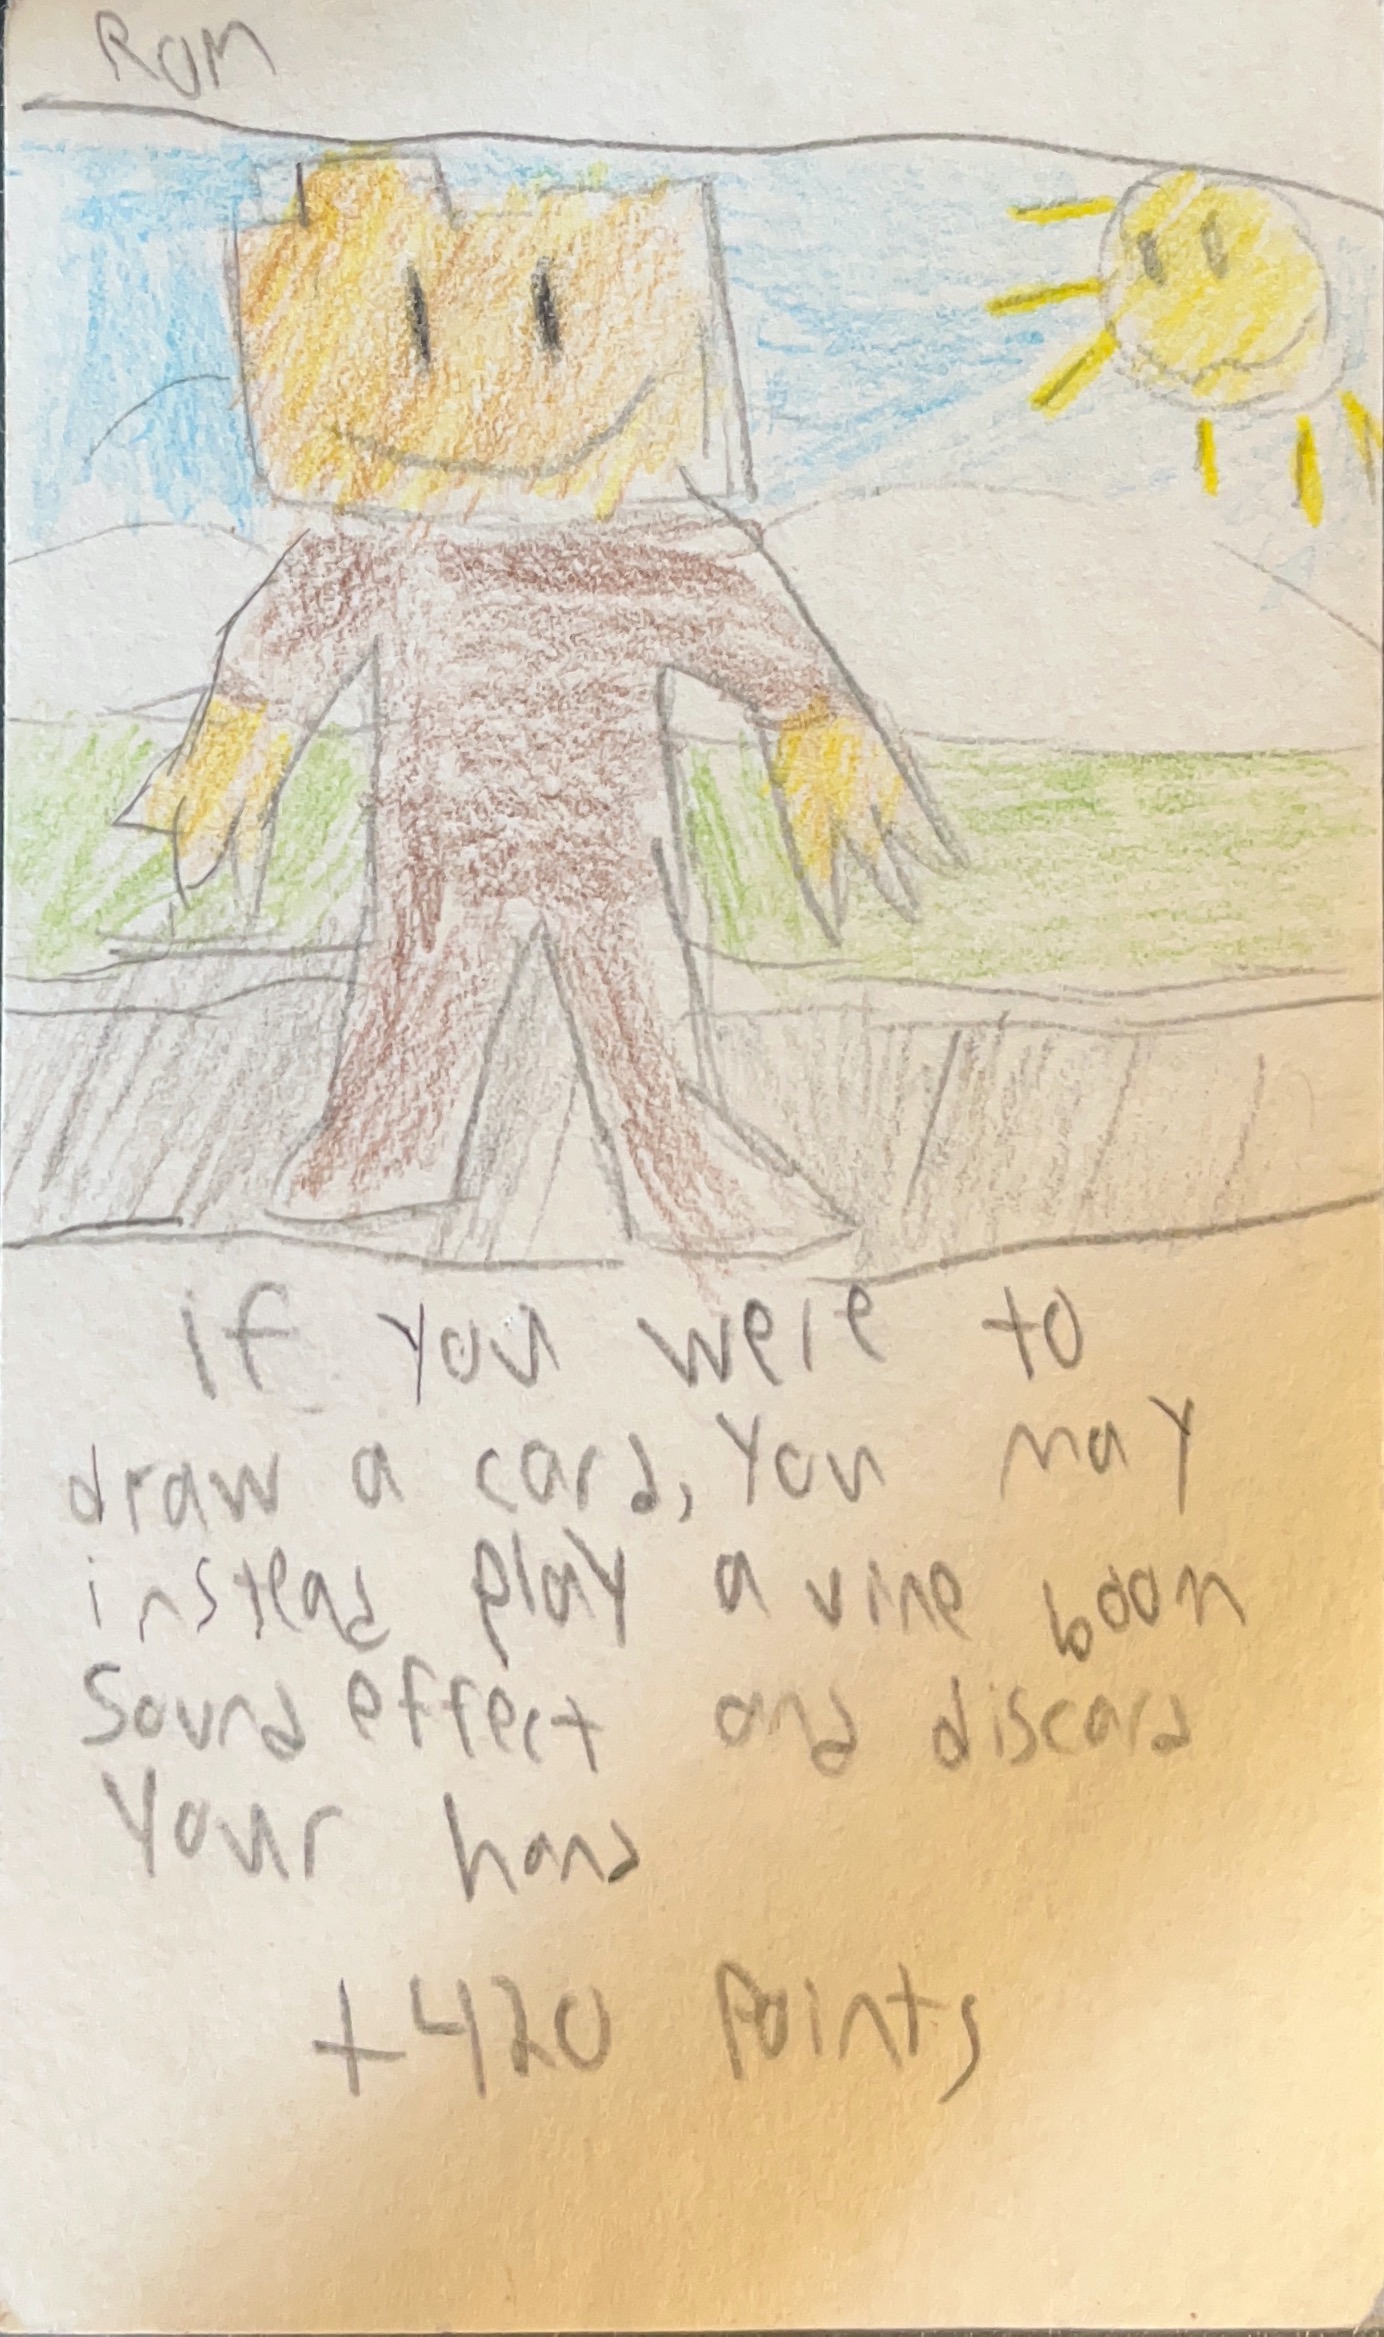 Rom
if you were to
draw a card, you may
instead play a vine boom
Sound effect and discard
Your hand
+420 Points